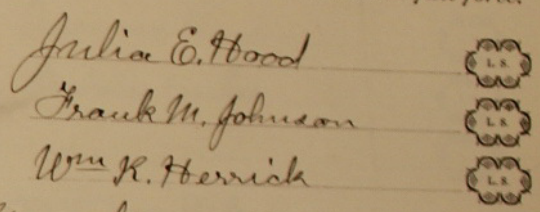 Julia E. Hood L. S.
Frank M. Johnson L. S.
Wm K. Herrick L. S.